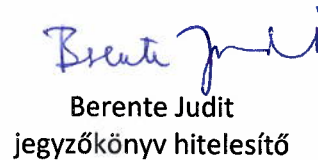 Berente Judit
Berente Judit
jegyzőkönyv hitelesítő